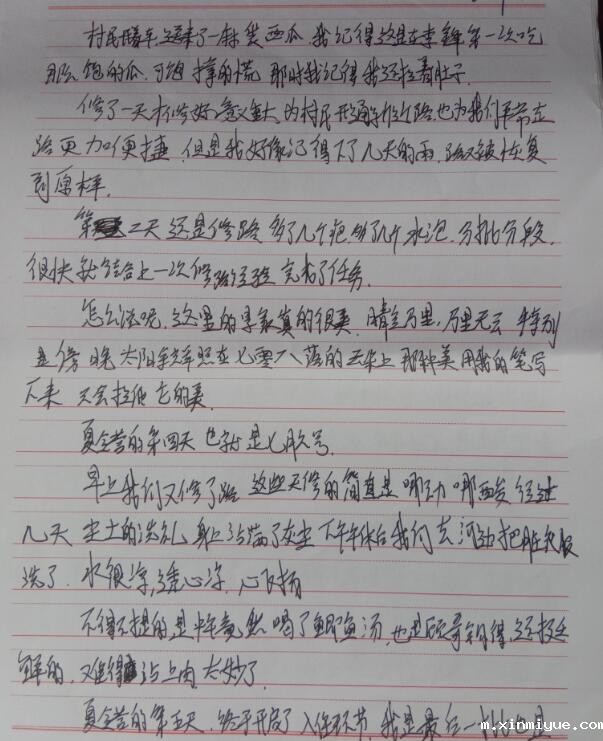 村民骑车送来了一麻袋西瓜,我记得这是在李集第一次吃
那么饱的瓜,可谓撑的慌,那时我记得我还拉着肚子.
修了一天水修好,意义重大,为村民形通,也为我们平常走
路更加便捷,但是我好像记得下了几天的雨,路又被恢复
到原样.
第二天还是修路,多了几个疤,多了几个水泡,分批分段,
很快就结合上一次修路经验完成了任务.
怎么说呢,这里的景象真的很美,晴空万里,万里无云,特别
是傍晚,太阳光照在七零八落的云朵上,那种美用我的笔写
下来只会拉低它的美.
夏令营的第四天也就是七月九号.
早上我们又修了路,这些天修的简直是,经过
几天尘土的洗礼,身上沾满了灰尘,下午午休后我们去河边把脏衣服
洗了.水很凉,透心凉,心飞扬
不得不提的是中午竟然喝了鲫鱼汤,也是硕哥钓得,还挺
鲜的,难得沾上肉,太妙了.
夏令营的第五天,终于开启了入住环节,我是最后一
m.xinmiyue.com